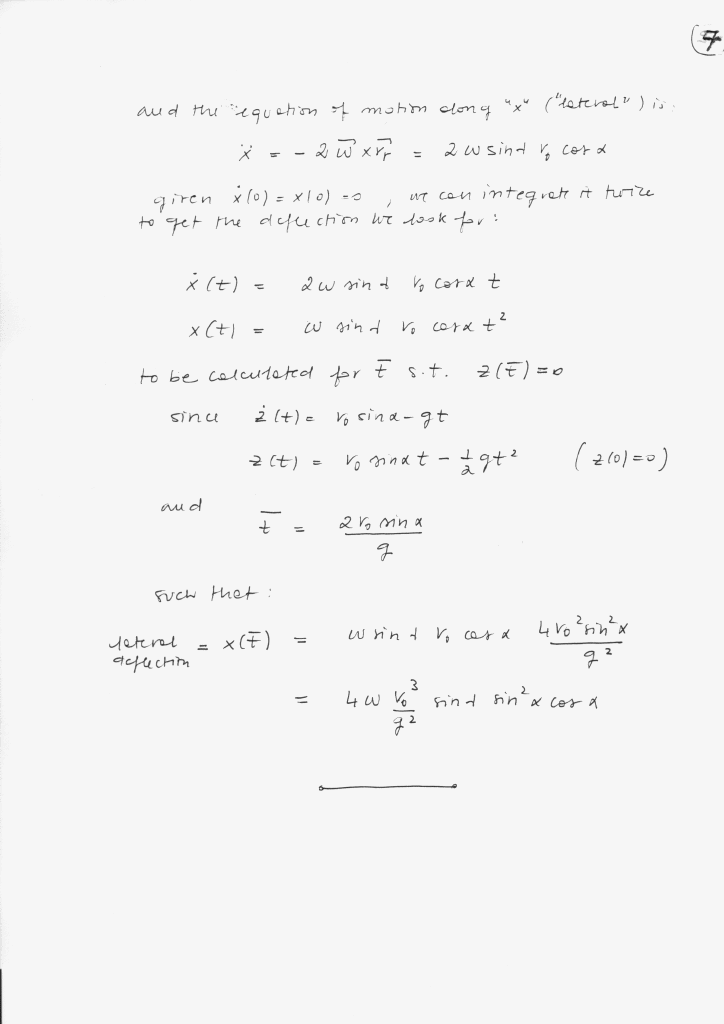 7
and the equation of motion along "x" ("lateral") is:
ẍ = - 2 ω̄ × v̄r = 2 ω sin λ v₀ cos α
given ẋ(0) = x(0) = 0 , we can integrate it twice
to get the deflection we look for :
ẋ(t) = 2 ω sin λ v₀ cos α t
x(t) = ω sin λ v₀ cos α t²
to be calculated for t̄ s.t. z(t̄) = 0
since ż(t) = v₀ sin α - gt
z(t) = v₀ sin α t - 1/2 gt² (z(0) = 0)
and t̄ = 2 v₀ sin α / g
such that :
lateral deflection = x(t̄) = ω sin λ v₀ cos α 4 v₀² sin² α / g²
= 4 ω v₀³ / g² sin λ sin² α cos α